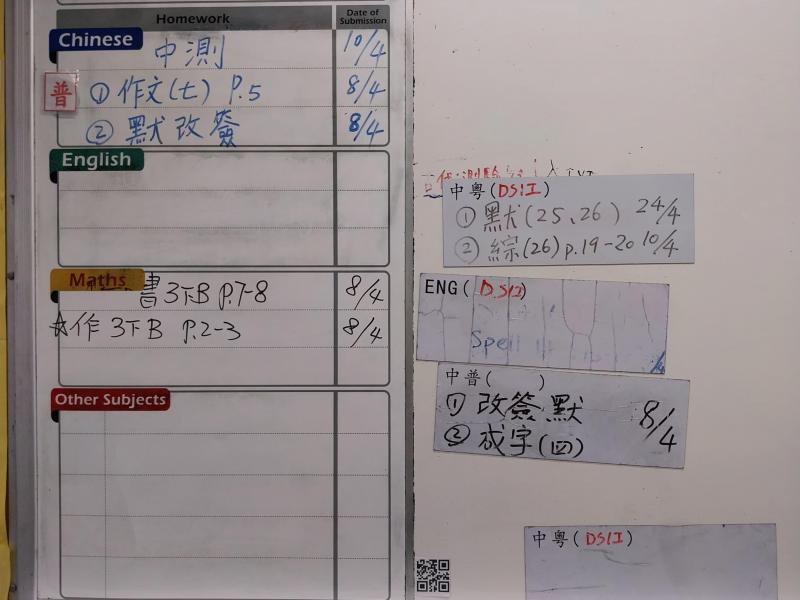 Homework
Date of Submission
Chinese
中測 10/4
普
① 作文(七) P.5 8/4
② 默改簽 8/4
English
Maths
書3下B P.7-8 8/4
☆作 3下B P.2-3 8/4
Other Subjects
中粵(DS1I)
① 默(25、26) 24/4
② 綜(26) p.19-20 10/4
ENG(
Spell
中普( )
① 改簽默 8/4
② 成字(四)
中粵(DS1I)